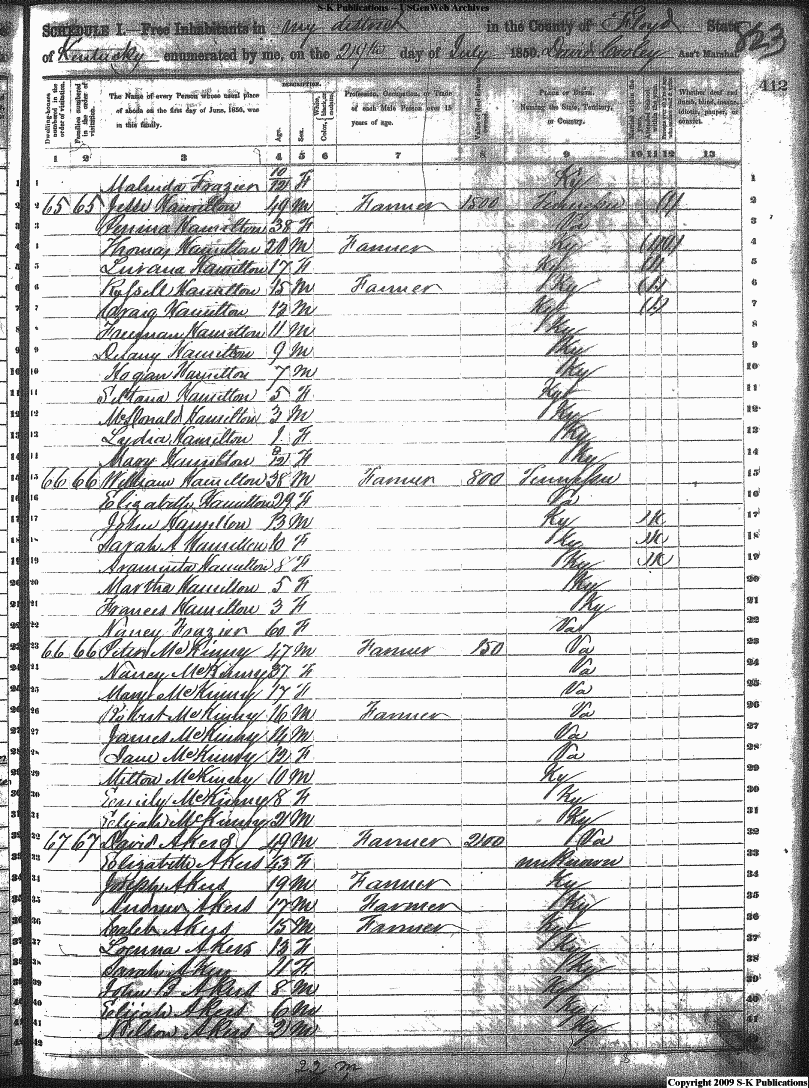 S-K Publications - USGenWeb Archives
SCHEDULE I. Free Inhabitants in my district in the County of Floyd State
of Kentucky enumerated by me, on the 29th day of July 1850. David Cooley Ass't Marshal
823
412
Dwelling-houses numbered in the order of visitation.
Families numbered in the order of visitation.
The Name of every Person whose usual place of abode on the first day of June, 1850, was in this family.
DESCRIPTION.
Age.
Sex.
Color, White, black, or mulatto.
Profession, Occupation, or Trade of each Male Person over 15 years of age.
Value of Real Estate
PLACE OF BIRTH. Naming the State, Territory, or Country.
Whether deaf and dumb, blind, insane, idiotic, pauper, or convict.
1 2 3 4 5 6 7 8 9 10 11 12 13
1 Malinda Frazier 10/12 F Ky 1
2 65 65 Jesse Hamilton 49 M Farmer 1500 2
3 Hamilton 38 F Va 3
4 Thomas Hamilton 20 M Farmer Ky 4
5 Lurana Hamilton 17 F Ky 5
6 Russell Hamilton 15 M Farmer Ky 6
7 Craig Hamilton 13 M Ky 7
8 Freeman Hamilton 11 M Ky 8
9 Delany Hamilton 9 M Ky 9
10 Hogan Hamilton 7 M Ky 10
11 Hamilton 5 F Ky 11
12 McDonald Hamilton 3 M Ky 12
13 Lydia Hamilton 1 F Ky 13
14 Mary Hamilton /12 F Ky 14
15 66 66 William Hamilton 38 M Farmer 800 Tennessee 15
16 Elizabeth Hamilton 29 F Va 16
17 John Hamilton 13 M Ky 17
18 Sarah A Hamilton 10 F Ky 18
19 Araminta Hamilton 8 F Ky 19
20 Martha Hamilton 5 F Ky 20
21 Frances Hamilton 3 F Ky 21
22 Nancy Frazier 60 F Va 22
23 66 66 Peter McKinny 47 M Farmer 150 Va 23
24 Nancy McKinny 37 F Va
25 Mary McKinny 17 F Va 25
26 Robert McKinny 16 M Farmer Va 26
27 James McKinny 14 M Va 27
28 Jane McKinny 12 F Va 28
29 Milton McKinny 10 M Ky 29
30 Emily McKinny 8 F Ky 30
31 Elijah McKinny 2 M Ky 31
32 67 67 David Akers 49 M Farmer 200 Va 32
33 Elizabeth Akers 43 F unknown 33
34 Joseph Akers 19 M Farmer Ky 34
35 Andrew Akers 17 M Farmer Ky 35
36 Caleb Akers 15 M Farmer Ky 36
37 Akers 13 F Ky 37
38 Sarah Akers 11 F Ky 38
39 John B Akers 8 M Ky 39
40 Elijah Akers 6 M Ky 40
41 Nelson Akers 2 M Ky 41
42
22 m
Copyright 2009 S-K Publications